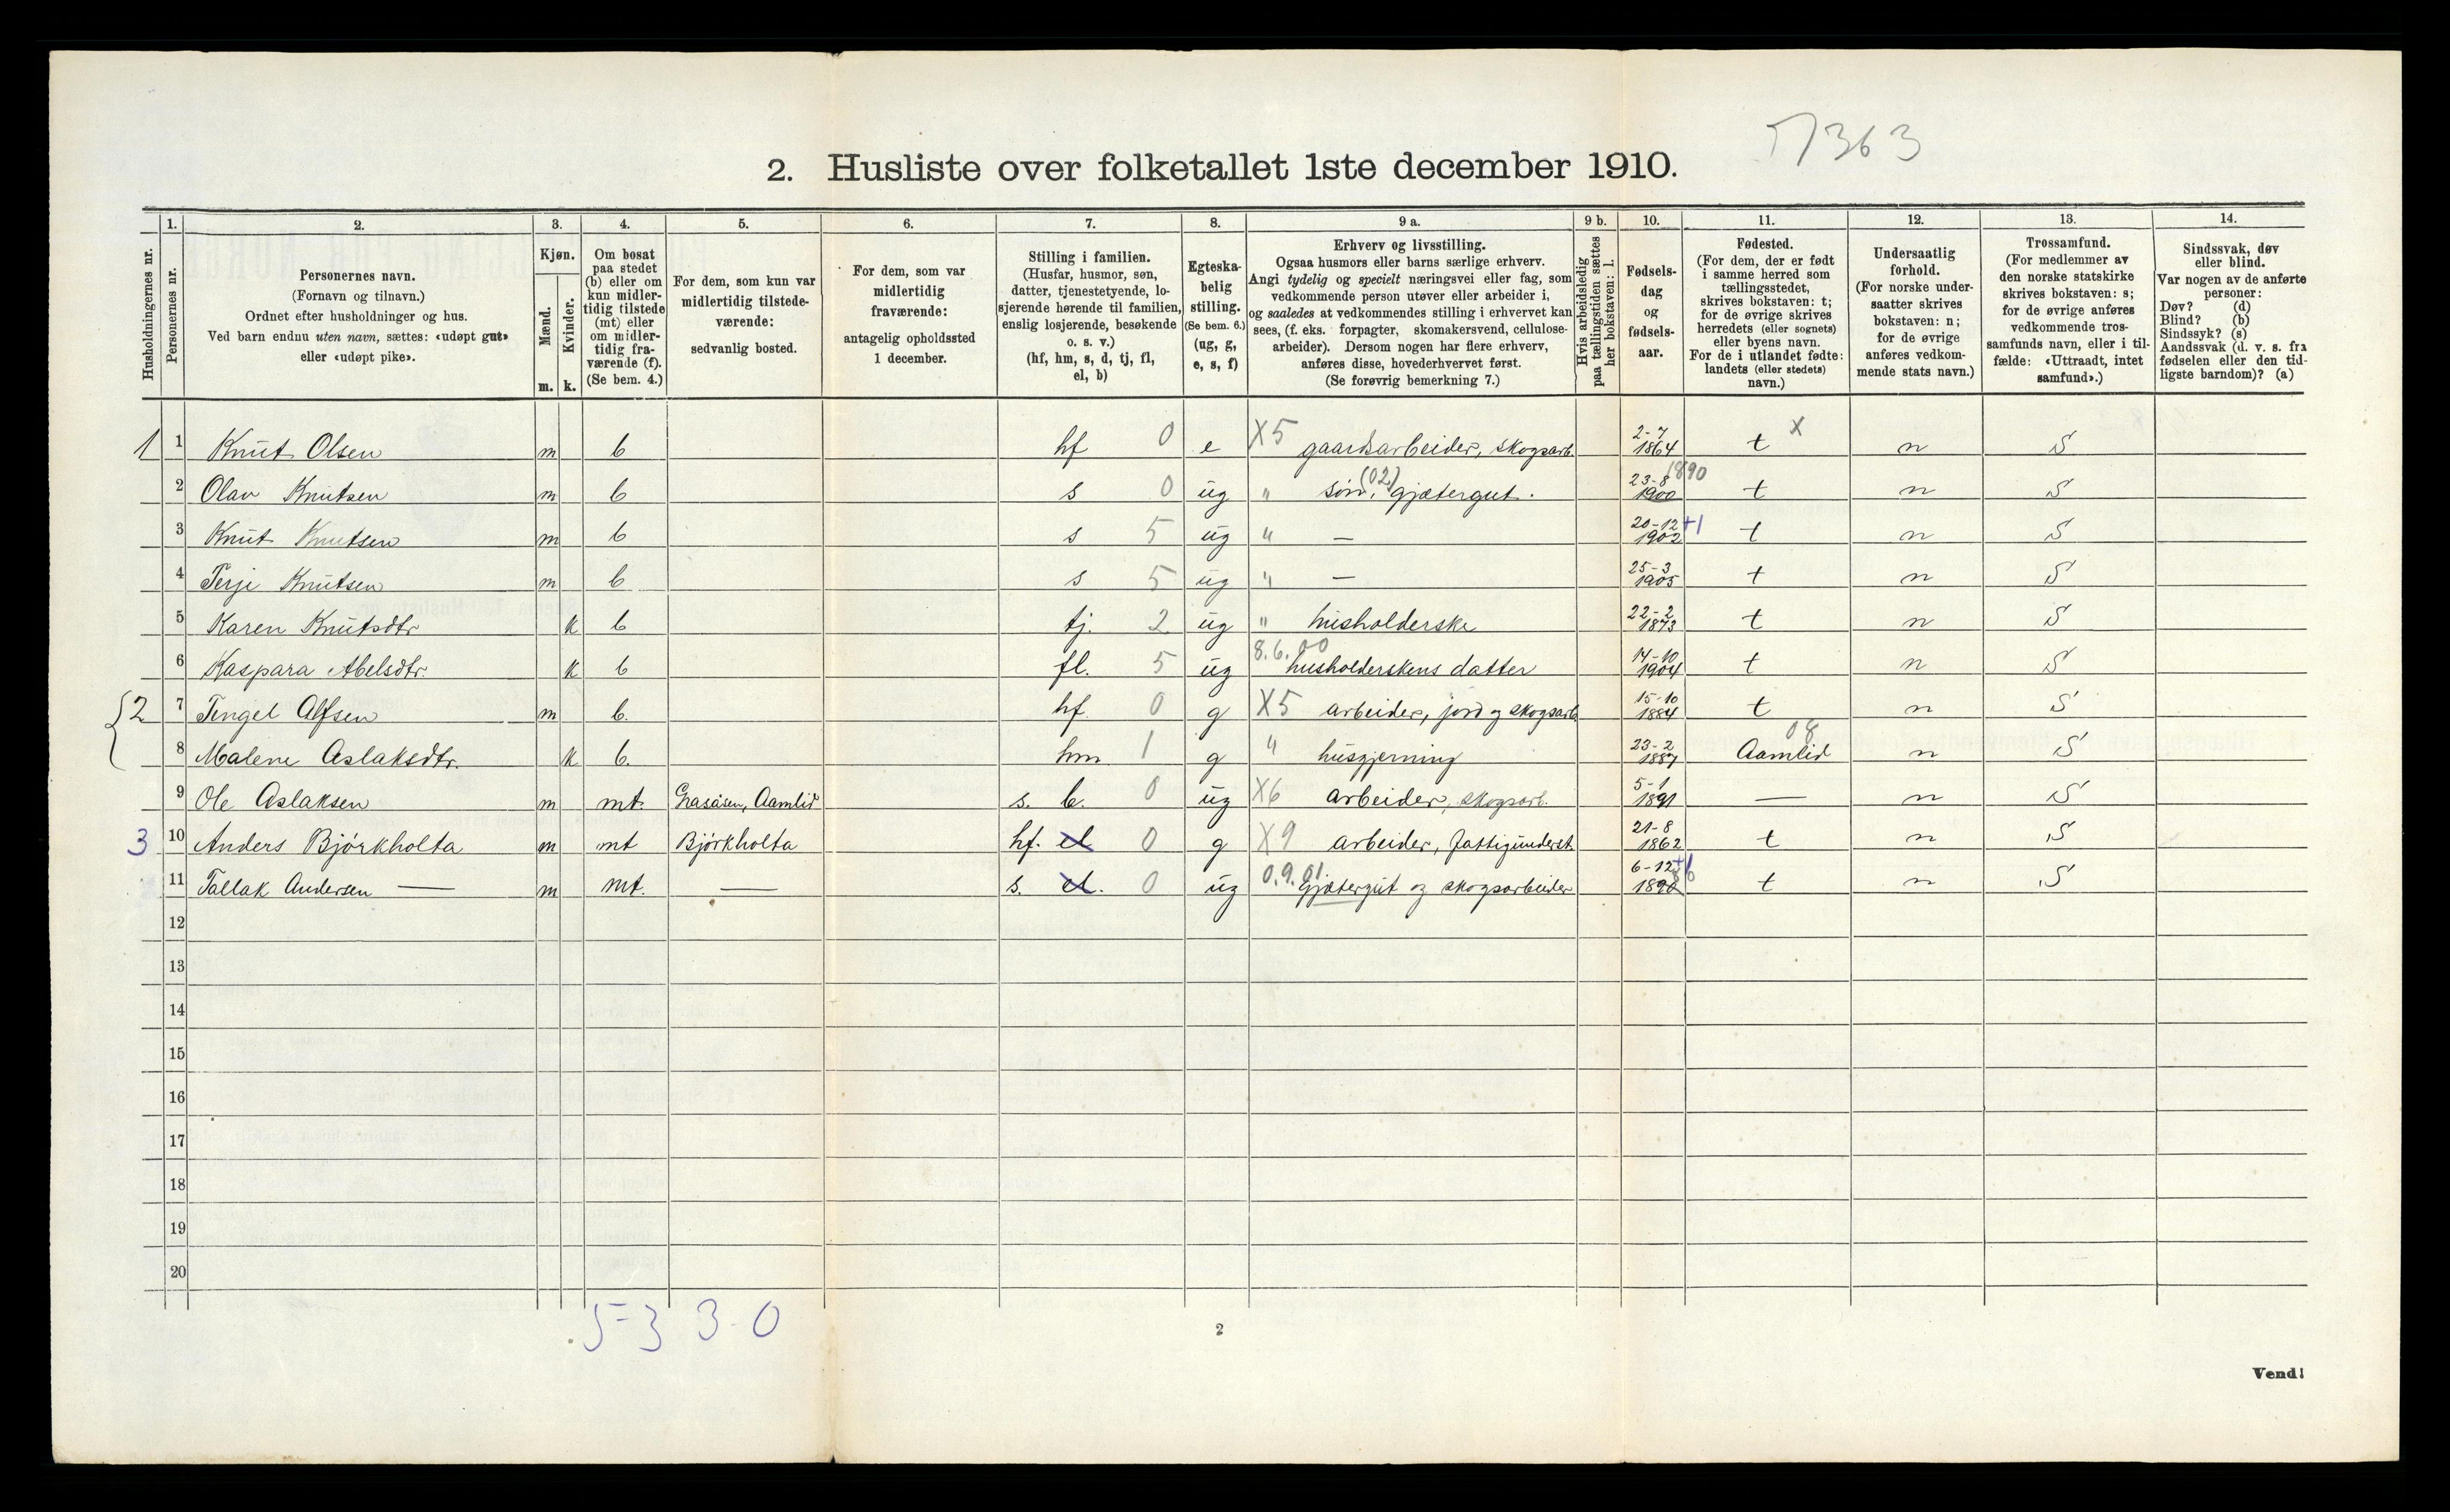 57363
2. Husliste over folketallet 1ste december 1910.
1. 2. 3. 4. 5. 6. 7. 8. 9 a. 9 b. 10. 11. 12. 13. 14.
Husholdningernes nr.
Personernes nr.
Personernes navn.
(Fornavn og tilnavn.)
Ordnet efter husholdninger og hus.
Ved barn endnu uten navn, sættes: «udøpt gut»
eller «udøpt pike».
Kjøn.
Mænd.
Kvinder.
m. k.
Om bosat
paa stedet
(b) eller om
kun midler-
tidig tilstede
(mt) eller
om midler-
tidig fra-
værende (f).
(Se bem. 4.)
For dem, som kun var
midlertidig tilstede-
værende:
sedvanlig bosted.
For dem, som var
midlertidig
fraværende:
antagelig opholdssted
1 december.
Stilling i familien.
(Husfar, husmor, søn,
datter, tjenestetyende, lo-
sjerende hørende til familien,
enslig losjerende, besøkende
o. s. v.)
(hf, hm, s, d, tj, fl,
el, b)
Egteska-
belig
stilling.
(Se bem. 6.)
(ug, g,
e, s, f)
Erhverv og livsstilling.
Ogsaa husmors eller barns særlige erhverv.
Angi tydelig og specielt næringsvei eller fag, som
vedkommende person utøver eller arbeider i,
og saaledes at vedkommendes stilling i erhvervet kan
sees, (f. eks. forpagter, skomakersvend, cellulose-
arbeider). Dersom nogen har flere erhverv,
anføres disse, hovederhvervet først.
(Se forøvrig bemerkning 7.)
Hvis arbeidsledig
paa tællingstiden sættes
her bokstaven: l.
Fødsels-
dag
og
fødsels-
aar.
Fødested.
(For dem, der er født
i samme herred som
tællingsstedet,
skrives bokstaven: t;
for de øvrige skrives
herredets (eller sognets)
eller byens navn.
For de i utlandet fødte:
landets (eller stedets)
navn.)
Undersaatlig
forhold.
(For norske under-
saatter skrives
bokstaven: n;
for de øvrige
anføres vedkom-
mende stats navn.)
Trossamfund.
(For medlemmer av
den norske statskirke
skrives bokstaven: s;
for de øvrige anføres
vedkommende tros-
samfunds navn, eller i til-
fælde: «Uttraadt, intet
samfund».)
Sindssvak, døv
eller blind.
Var nogen av de anførte
personer:
Døv? (d)
Blind? (b)
Sindssyk? (s)
Aandssvak (d. v. s. fra
fødselen eller den tid-
ligste barndom)? (a)
1 1 Knut Olsen m b hf 0 e X5 gaardsarbeider, skogsarb. 2-7 1864 t X n S
2 Olav Knutsen m b s 0 ug " søn, (02) gjætergut. 23-8 1900 1890 t n S
3 Knut Knutsen m b s 5 ug " — 20-12 1902 +1 t n S
4 Terje Knutsen m b s 5 ug " — 25-3 1905 t n S
5 Karen Knutsdtr k b tj. 2 ug " husholderske 22-2 1873 t n S
6 Kaspara Abelsdtr. k b fl. 5 ug 8.6.00 husholderskens datter 14-10 1904 t n S
2 7 Tengel Alfsen m b. hf 0 g X5 arbeider, jord og skogsarb. 15-10 1884 t n S
8 Malene Aslaksdtr. k b. hm 1 g " husgjerning 23-2 1887 Aamlid 08 n S
9 Ole Aslaksen m mt. Grasåsen, Aamlid s. b. 0 ug X6 arbeider, skogsarb. 5-1 1891 — n S
3 10 Anders Bjørkholta m mt Bjørkholta hf. el 0 g X9 arbeider, fattigunderst. 21-8 1862 t n S
11 Tallak Andersen — m mt. — s. el. 0 ug 0.9.01. Gjætergut og skogsarbeider 6-12 +1 1890 t n S
12
13
14
15
16
17
18
19
20
5-3 3-0
2
Vend!